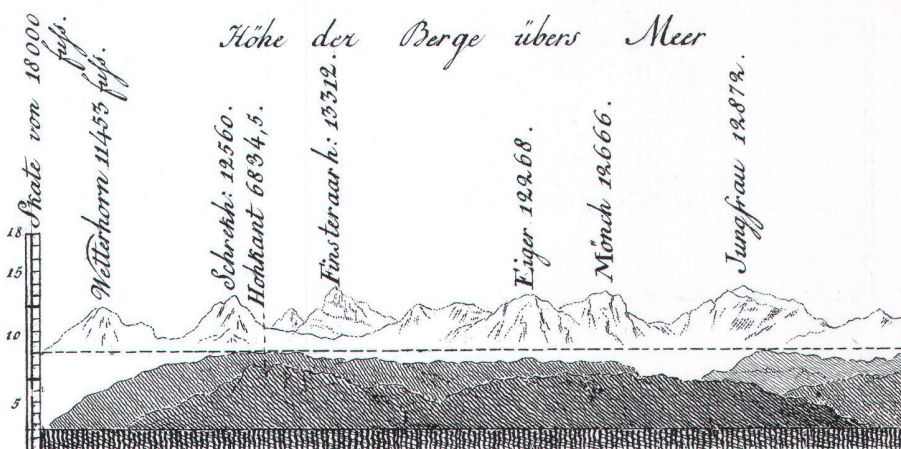 Höhe der Berge übers Meer
Skale von 18000 fuſs.
Wetterhorn 11453 fuſs.
Schrekh: 12560.
Hohkant 6834,5.
Finsteraarh: 13312.
Eiger 12268.
Mönch 12666.
Jungfrau 12872.
18
15
10
5